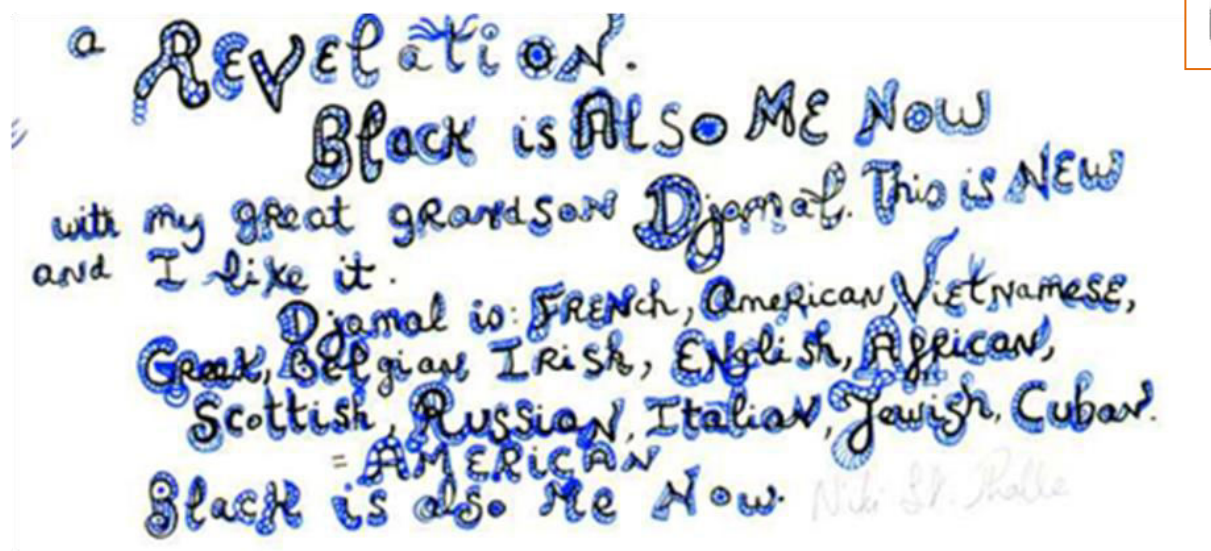 a REVElatioN.
Black is Also ME Now
with my gReat gRandSoN Djamal. This is NEW
and I like it.
Djamal is: FRENch, AmeRican, VietNamese,
Greek, Belgian IRiSh, ENglish, AfRican,
Scottish, Russian, Italian, Jewish, Cuban.
= AMERiCAN
Black is also Me Now.
Niki St. Phalle